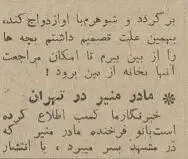 بر گردد و شوهرم با او ازدواج کند،
بهمین علت تصمیم داشتم بچه ها
را از بین ببرم تا امکان مراجعت
آنها بخانه از بین برود!
مادر منیر در تهران
خبرنگار ما کسب اطلاع کرده
است بانو فرخنده مادر منیر که
در مشهد بسر میبرد، با انتشار